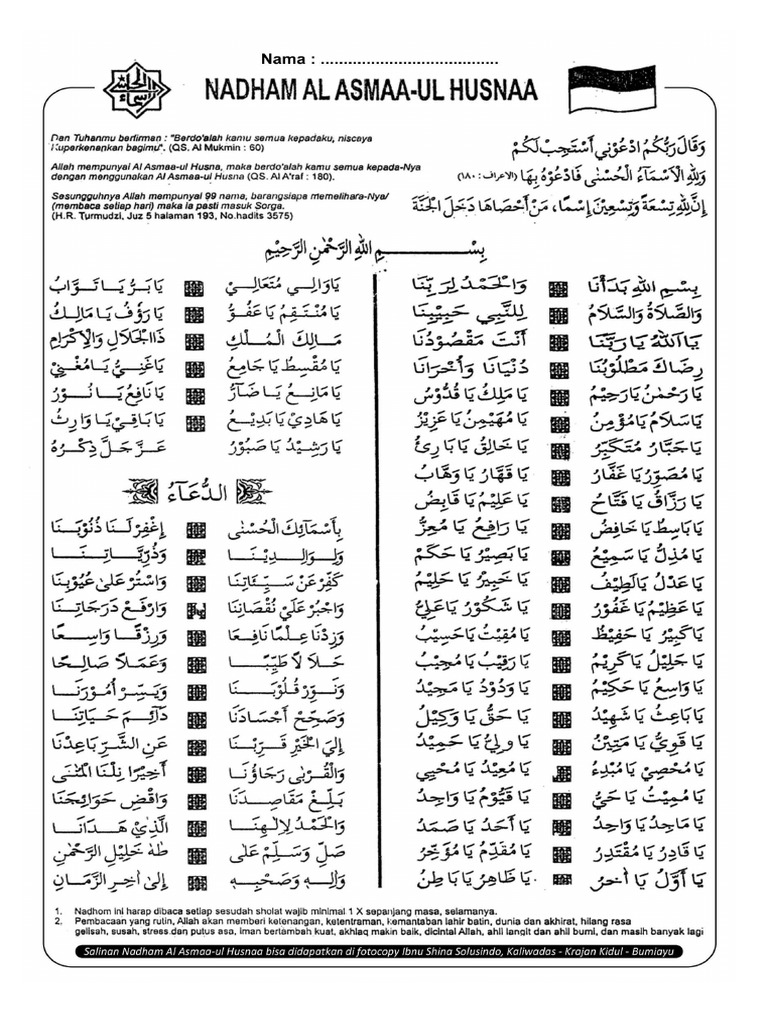 Nama : .......................................
NADHAM AL ASMAA-UL HUSNAA
Dan Tuhanmu berfirman : "Berdo'alah kamu semua kepadaku, niscaya
Kuperkenankan bagimu". (QS. Al Mukmin : 60)
Allah mempunyai Al Asmaa-ul Husna, maka berdo'alah kamu semua kepada-Nya
dengan menggunakan Al Asmaa-ul Husna (QS. Al A'raf : 180).
Sesungguhnya Allah mempunyai 99 nama, barangsiapa memelihara-Nya/
(membaca setiap hari) maka ia pasti masuk Sorga.
(H.R. Turmudzi, Juz 5 halaman 193, No.hadits 3575)
وَقَالَ رَبُّكُمُ ادْعُوْنِي أَسْتَجِبْ لَكُمْ
وَلِلّٰهِ الْاَسْمَاءُ الْحُسْنٰى فَادْعُوْهُ بِهَا (الاعراف : ١٨٠)
إِنَّ لِلّٰهِ تِسْعَةً وَتِسْعِيْنَ إِسْمًا، مَنْ أَحْصَاهَا دَخَلَ الْجَنَّةَ
بِسْمِ اللهِ الرَّحْمٰنِ الرَّحِيْمِ
بِسْمِ اللهِ بَدَأْنَا وَالْحَمْدُ لِرَبِّنَا
وَالصَّلَاةُ وَالسَّلَامُ لِلنَّبِي حَبِيْبِنَا
يَا اَللهُ يَا رَبَّنَا أَنْتَ مَقْصُوْدُنَا
رِضَاكَ مَطْلُوْبُنَا دُنْيَانَا وَأُخْرَانَا
يَا رَحْمٰنُ يَا رَحِيْمُ يَا مَلِكُ يَا قُدُّوْسُ
يَا سَلَامُ يَا مُؤْمِنُ يَا مُهَيْمِنُ يَا عَزِيْزُ
يَا جَبَّارُ مُتَكَبِّرُ يَا خَالِقُ يَا بَارِئُ
يَا مُصَوِّرُ يَا غَفَّارُ يَا قَهَّارُ يَا وَهَّابُ
يَا رَزَّاقُ يَا فَتَّاحُ يَا عَلِيْمُ يَا قَابِضُ
يَا بَاسِطُ يَا خَافِضُ يَا رَافِعُ يَا مُعِزُّ
يَا مُذِلُّ يَا سَمِيْعُ يَا بَصِيْرُ يَا حَكَمُ
يَا عَدْلُ يَا لَطِيْفُ يَا خَبِيْرُ يَا حَلِيْمُ
يَا عَظِيْمُ يَا غَفُوْرُ يَا شَكُوْرُ يَا عَلِيُّ
يَا كَبِيْرُ يَا حَفِيْظُ يَا مُقِيْتُ يَا حَسِيْبُ
يَا جَلِيْلُ يَا كَرِيْمُ يَا رَقِيْبُ يَا مُجِيْبُ
يَا وَاسِعُ يَا حَكِيْمُ يَا وَدُوْدُ يَا مَجِيْدُ
يَا بَاعِثُ يَا شَهِيْدُ يَا حَقُّ يَا وَكِيْلُ
يَا قَوِيُّ يَا مَتِيْنُ يَا وَلِيُّ يَا حَمِيْدُ
يَا مُحْصِيْ يَا مُبْدِءُ يَا مُعِيْدُ يَا مُحْيِي
يَا مُمِيْتُ يَا حَيُّ يَا قَيُّوْمُ يَا وَاجِدُ
يَا مَاجِدُ يَا وَاحِدُ يَا أَحَدُ يَا صَمَدُ
يَا قَادِرُ يَا مُقْتَدِرُ يَا مُقَدِّمُ يَا مُؤَخِّرُ
يَا أَوَّلُ يَا اٰخِرُ يَا ظَاهِرُ يَا بَاطِنُ
يَا وَالِي مُتَعَالِيْ يَا بَرُّ يَا تَوَّابُ
يَا مُنْتَقِمُ يَا عَفُوُّ يَا رَؤُفُ يَا مَالِكُ
مَالِكَ الْمُلْكِ ذَا الْجَلَالِ وَالْإِكْرَامِ
يَا مُقْسِطُ يَا جَامِعُ يَا غَنِيُّ يَا مُغْنِيْ
يَا مَانِعُ يَا ضَآرُّ يَا نَافِعُ يَا نُوْرُ
يَا هَادِيْ يَا بَدِيْعُ يَا بَاقِيْ يَا وَارِثُ
يَا رَشِيْدُ يَا صَبُوْرُ عَزَّ جَلَّ ذِكْرُهُ
الدُّعَآءُ
بِأَسْمَائِكَ الْحُسْنٰى إِغْفِرْ لَنَا ذُنُوْبَنَا
وَلِوَالِدِيْنَا وَذُرِّيَّاتِنَا
كَفِّرْ عَنْ سَيِّئَاتِنَا وَاسْتُرْ عَلٰى عُيُوْبِنَا
وَاجْبُرْ عَلٰى نُقْصَانِنَا وَارْفَعْ دَرَجَاتِنَا
وَزِدْنَا عِلْمًا نَافِعًا وَرِزْقًا وَاسِعًا
حَلَالًا طَيِّبًا وَعَمَلًا صَالِحًا
وَنَوِّرْ قُلُوْبَنَا وَيَسِّرْ أُمُوْرَنَا
وَصَحِّحْ أَجْسَادَنَا دَآئِمَ حَيَاتِنَا
إِلَى الْخَيْرِ قَرِّبْنَا عَنِ الشَّرِّ بَاعِدْنَا
وَالْقُرْبٰى رَجَاؤُنَا أَخِيْرًا نِلْنَا الْمُنٰى
بَلِّغْ مَقَاصِدَنَا وَاقْضِ حَوَائِجَنَا
وَالْحَمْدُ لِإِلٰهِنَا الَّذِيْ هَدَانَا
صَلِّ وَسَلِّمْ عَلٰى طٰهٰ خَلِيْلِ الرَّحْمٰنِ
وَاٰلِهِ وَصَحْبِهِ إِلٰى اٰخِرِ الزَّمَانِ
1. Nadhom ini harap dibaca setiap sesudah sholat wajib minimal 1 X sepanjang masa, selamanya.
2. Pembacaan yang rutin, Allah akan memberi ketenangan, ketentraman, kemantaban lahir batin, dunia dan akhirat, hilang rasa
gelisah, susah, stress dan putus asa, iman bertambah kuat, akhlaq makin baik, dicintai Allah, ahli langit dan ahli bumi, dan masih banyak lagi
Salinan Nadham Al Asmaa-ul Husnaa bisa didapatkan di fotocopy Ibnu Shina Solusindo, Kaliwadas - Krajan Kidul - Bumiayu